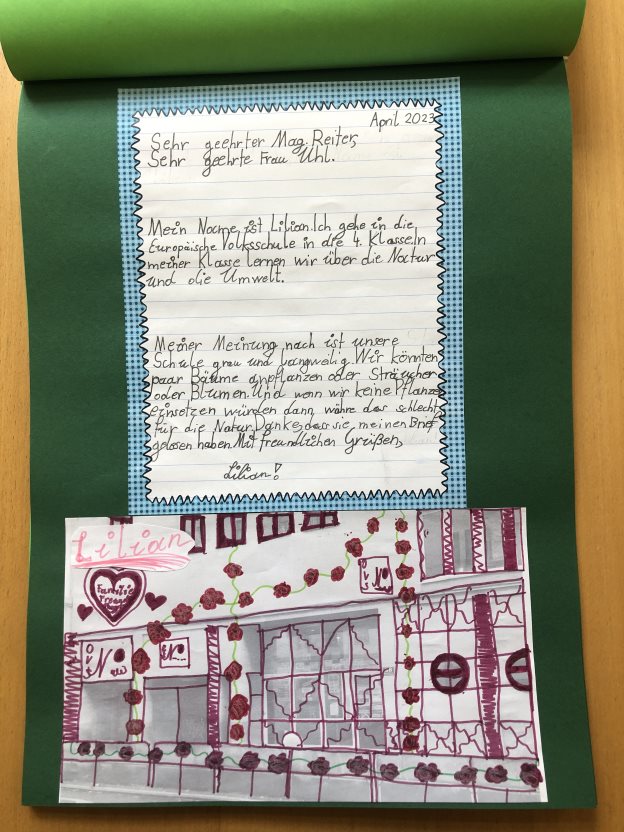 April 2023
Sehr geehrter Mag. Reiter,
Sehr geehrte Frau Uhl.
Mein Name ist Lilian. Ich gehe in die
Europäische Volksschule in die 4. Klasse. In
meiner Klasse lernen wir über die Natur
und die Umwelt.
Meiner Meinung nach ist unsere
Schule grau und langweilig. Wir könnten
paar Bäume anpflanzen oder Sträucher
oder Blumen. Und wenn wir keine Pflanzen
einsetzen würden dann währe das schlecht
für die Natur. Danke, dass sie meinen Brief
gelesen haben. Mit freundlichen Grüßen,
Lilian!
Lilian
Familie